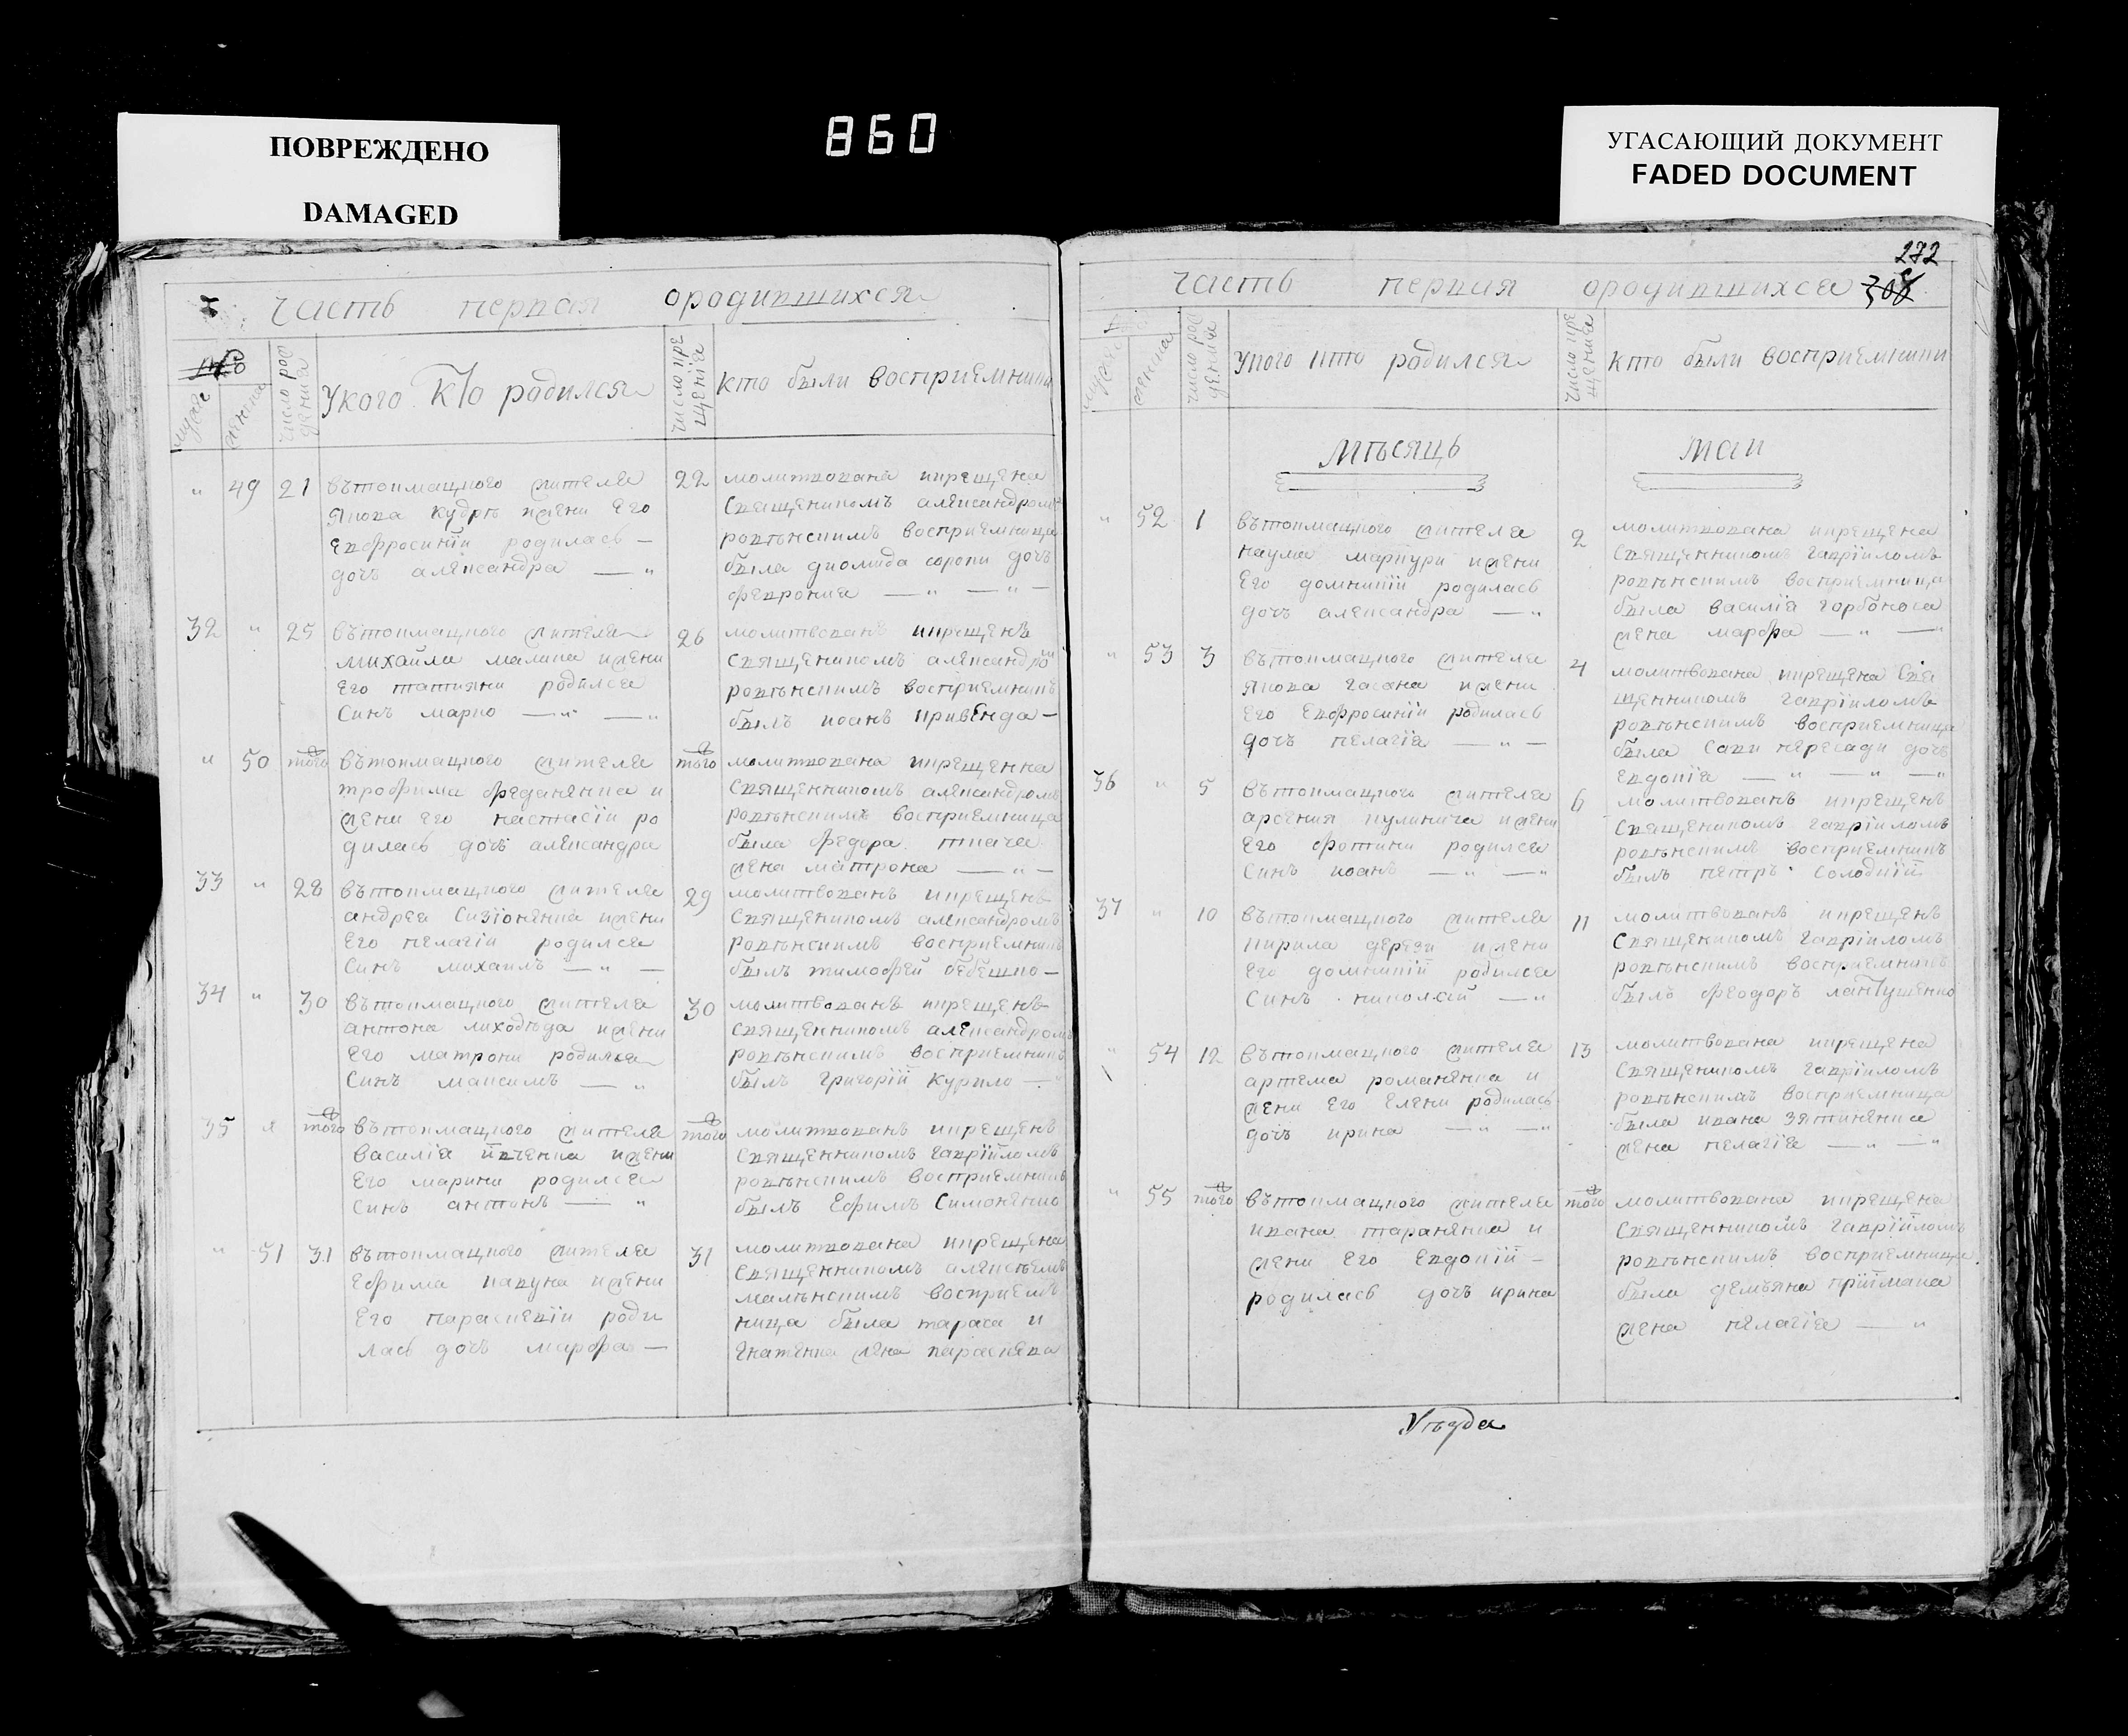 ПОВРЕЖДЕНО
DAMAGED
860
УГАСАЮЩИЙ ДОКУМЕНТ
FADED DOCUMENT
часть первая ородившихся
число рождения
Укого Кто родился
число крещения
кто были восприемники
49 21
вътопмацкого жителя
якова кудрѣ ижени его
евфросинїи родилась —
дочъ александра — "
22
молитвована икрещена
священикомъ александромъ
ровѣнскимъ восприемница
была диомида сороки дочъ
феврония — " — " —
32 " 25
вътопмацкого жителя
михайла малика ижени
его татияни родился
синъ марко — " — "
26
молитвованъ икрещенъ
священикомъ александром
ровѣнскимъ восприемникъ
былъ иоанъ кривенда —
" 50 того
вътопмацкого жителя
трофима феданенка и
жени его настасїи ро
дилась дочъ александра
того
молитвована икрещенна
священникомъ александромъ
ровѣнскимъ восприемница
была федора ткача
жена матрона — " —
33 " 28
вътопмацкого жителя
андрея сизїоненка ижени
его пелагїи родился
синъ михаилъ — " —
29
молитвованъ икрещенъ
священикомъ александромъ
ровѣнскимъ восприемникъ
былъ тимофей бебешко —
34 " 30
вътопмацкого жителя
антона лиходѣда ижени
его матрони родился
синъ максимъ — "
30
молитвованъ икрещенъ
священникомъ александромъ
ровѣнскимъ восприемникъ
былъ григорїй курило —
35 того
вътопмацкого жителя
василїя ївченка ижени
его марини родился
синъ антонъ — "
того
молитвованъ икрещенъ
священикомъ гаврїиломъ
ровѣнскимъ восприемникъ
былъ ефимъ симоненко
" 51 31
вътопмацкого жителя
ефима какуна ижени
его параскевїи роди
лась дочъ марфа —
31
молитвована икрещена
священникомъ алексѣемъ
малѣнскимъ восприем
ница была тараса и
гнатенка жена параскева
272
часть первая ородившихся
число рождения
укого кто родился
число крещения
кто были восприемники
мѣсяцъ
маи
" 52 1
вътопмацкого жителя
наума маркури ижени
его домникїи родилась
дочъ александра — "
2
молитвована икрещена
священникомъ гаврїиломъ
ровѣнскимъ восприемница
была василїя горбоноса
жена марфа — " — "
" 53 3
вътопмацкого жителя
якова гасана ижени
его евфросинїи родилась
дочъ пелагїя — " —
4
молитвована икрещена свя
щенникомъ гаврїиломъ
ровѣнскимъ восприемница
была сави пересади дочъ
евдокїя — " — " — "
36 " 5
вътопмацкого жителя
арсения кулинича ижени
его фотини родился
синъ иоанъ — " — "
6
молитвованъ икрещенъ
священикомъ гаврїиломъ
ровѣнскимъ восприемникъ
былъ петръ солодкїй
37 " 10
вътопмацкого жителя
кирила дерези ижени
его домникїй родился
синъ николай — "
11
молитвованъ икрещенъ
священикомъ гаврїиломъ
ровѣнскимъ восприемникъ
былъ феодоръ лантушенко
" 54 12
вътопмацкого жителя
артема романенка и
жени его елени родилась
дочъ ирина — " — "
13
молитвована икрещена
священикомъ гаврїиломъ
ровѣнскимъ восприемница
была ивана зятиненка
жена пелагїя — " — "
" 55 того
вътопмацкого жителя
ивана тараненка и
жени его евдокїй —
родилась дочъ ирина
того
молитвована икрещена
священникомъ гаврїйломъ
ровѣнскимъ восприемница
была демъяна прїймака
жена пелагїя — "
Уѣзда